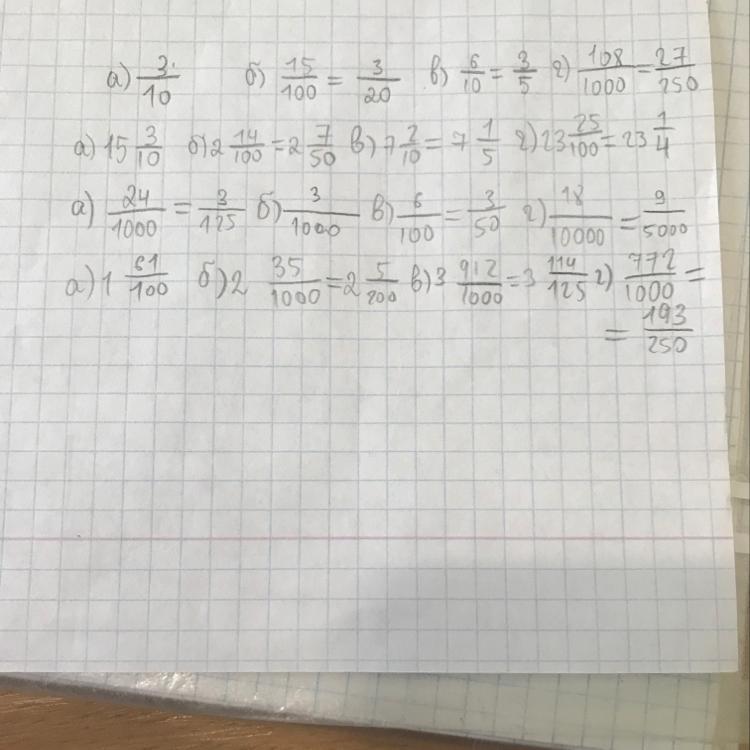 а) 3/10 б) 15/100 = 3/20 в) 6/10 = 3/5 г) 108/1000 = 27/250
а) 15 3/10 б) 2 14/100 = 2 7/50 в) 7 2/10 = 7 1/5 г) 23 25/100 = 23 1/4
а) 24/1000 = 3/125 б) 3/1000 в) 6/100 = 3/50 г) 18/10000 = 9/5000
а) 1 61/100 б) 2 35/1000 = 2 5/200 в) 3 912/1000 = 3 114/125 г) 772/1000 =
= 193/250